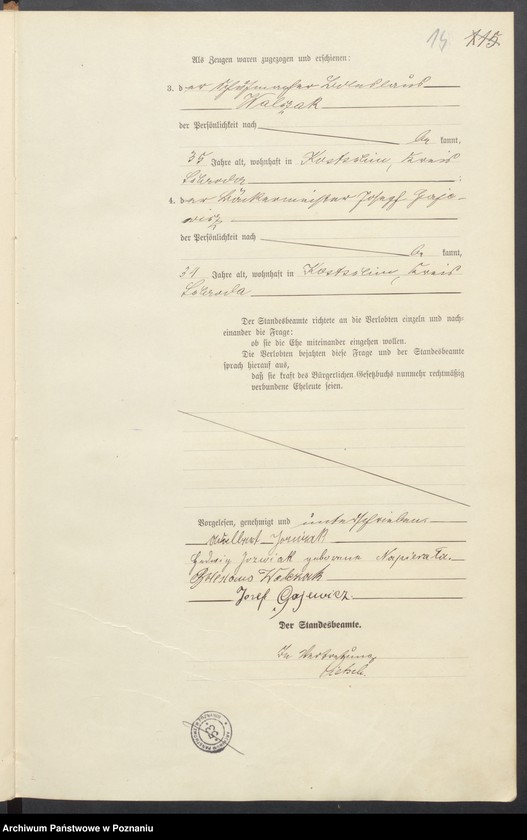 15 115.
Als Zeugen waren zugezogen und erschienen:
3. der Schuhmacher Boleslaus
Walczak
der Persönlichkeit nach
be kannt,
35 Jahre alt, wohnhaft in Kostschin, Kreis
Schroda ;
4. der Bäckermeister Josef Gaje-
wicz
der Persönlichkeit nach
be kannt,
34 Jahre alt, wohnhaft in Kostschin, Kreis
Schroda
Der Standesbeamte richtete an die Verlobten einzeln und nach-
einander die Frage:
ob sie die Ehe miteinander eingehen wollen.
Die Verlobten bejahten diese Frage und der Standesbeamte
sprach hierauf aus,
daß sie kraft des Bürgerlichen Gesetzbuchs nunmehr rechtmäßig
verbundene Eheleute seien.
Vorgelesen, genehmigt und unterschrieben
Adelbert Jozwiak
Hedwig Jozwiak geborene Napierała.
Boleslaus Walczak
Josef Gajewicz.
Der Standesbeamte.
In Vertretung
Archiwum Państwowe w Poznaniu